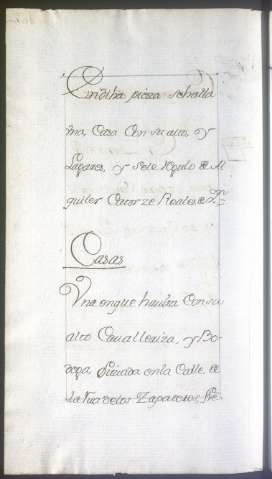 En dicha pieza se halla
una, Casa Con su alto, y
Lagares, y se le Regulo de Al
quiler Catorze Reales de Vn
Casas
Vna en que havita Con su
alto Cavalleriza, y Bo-
dega, Situada en la Calle, de
la Rua de los Zapateros,